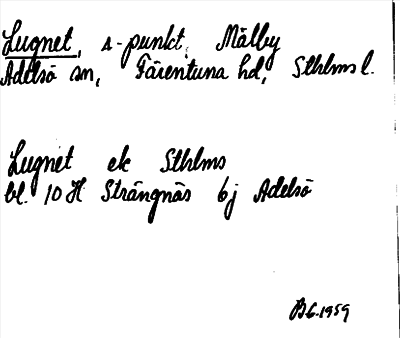 Lugnet, s-punkt, Mälby
Adelsö sn, Färentuna hd, Sthlms l.
Lugnet ek Sthlms
bl. 10 H Strängnäs bj Adelsö
B6.1959